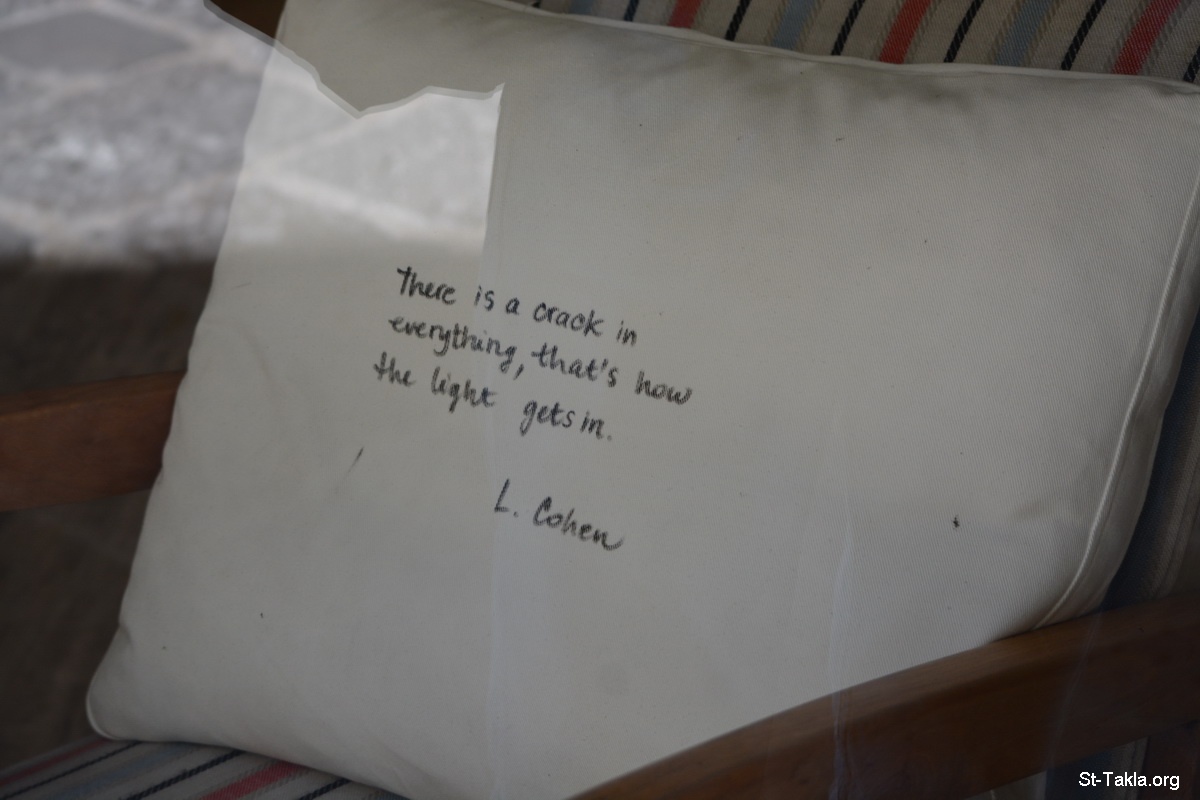 There is a crack in
everything, that's how
the light gets in.
L. Cohen
St-Takla.org